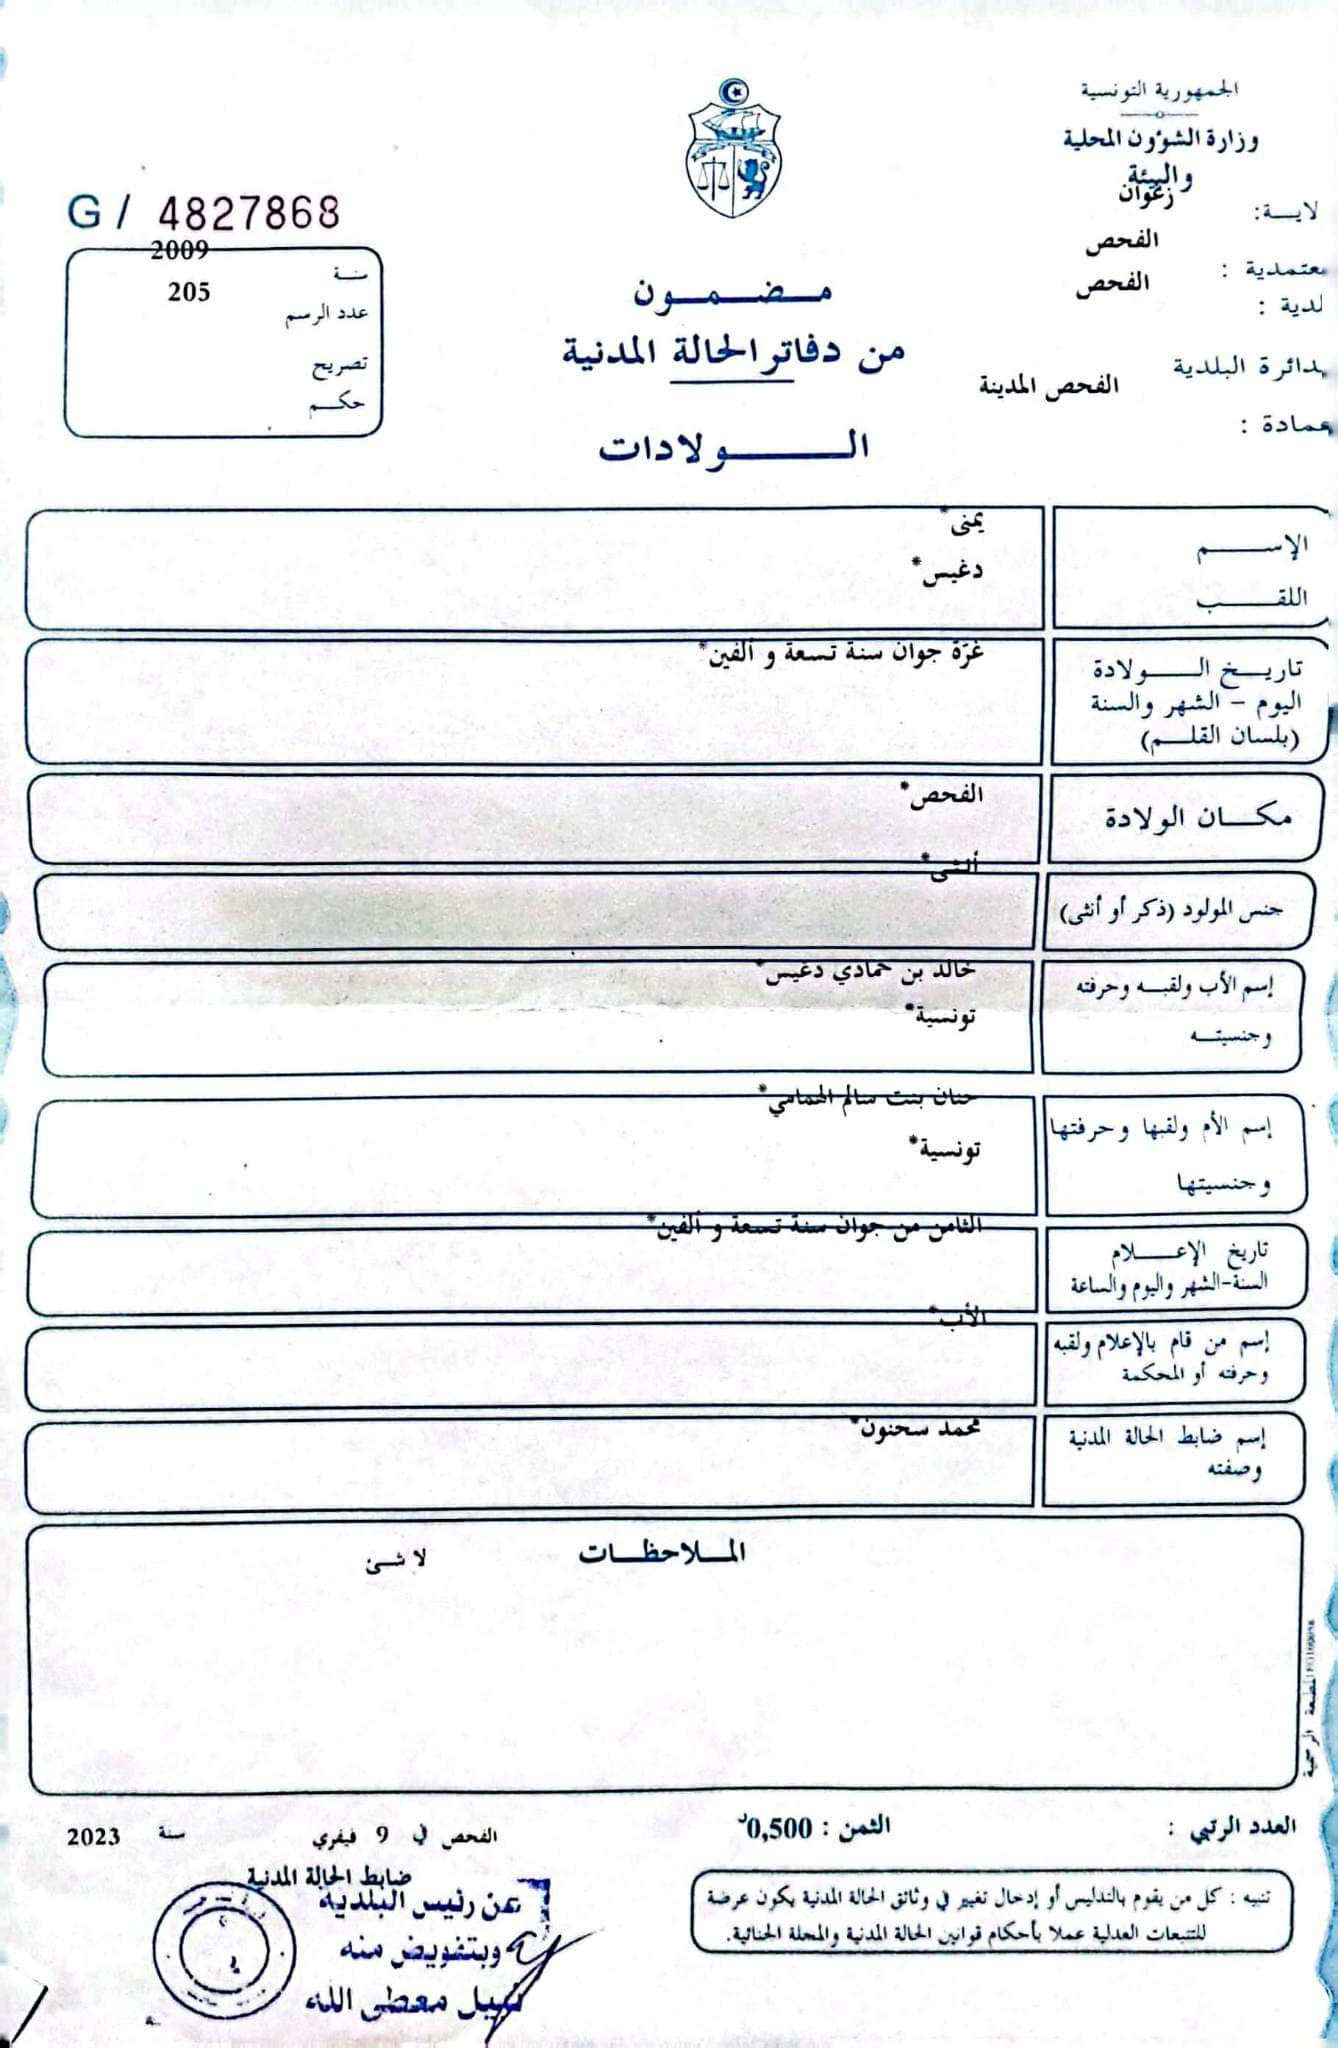 الجمهورية التونسية
وزارة الشؤون المحلية
والبيئة
لايـــة: زغوان
معتمدية : الفحص
لدية : الفحص
دائرة البلدية
عمادة : الفحص المدينة
G / 4827868
سنة 2009
عدد الرسم 205
تصريح
حكـــم
مـــضـــمـــون
من دفاتر الحالة المدنية
الـــــــولادات
الإســـــــم يمنى*
اللقـــــب دغيس*
تاريـــخ الـــــولادة غرّة جوان سنة تسعة و ألفين*
اليوم - الشهر والسنة
(بلسان القلـــم)
مكـــان الولادة الفحص*
جنس المولود (ذكر أو أنثى) أنثى*
إسم الأب ولقبـــه وحرفته خالد بن حمادي دغيس*
وجنسيتـــه تونسية*
إسم الأم ولقبها وحرفتها حنان بنت سالم الهمامي*
وجنسيتها تونسية*
تاريخ الإعـــــلام الثامن من جوان سنة تسعة و ألفين*
السنة-الشهر واليوم والساعة
إسم من قام بالإعلام ولقبه الأب*
وحرفته أو المحكمة
إسم ضابط الحالة المدنية محمد سحنون*
وصفته
المـــلاحظـــات
لا شئ
المطبعة الرسمية
العدد الرتبي :
الثمن : 0,500د
الفحص في 9 فيفري سنة 2023
ضابط الحالة المدنية
عن رئيس البلدية
وبتفويض منه
نبيل معطى الله
تنبيه : كل من يقوم بالتدليس أو إدخال تغيير في وثائق الحالة المدنية يكون عرضة
للتتبعات العدلية عملا بأحكام قوانين الحالة المدنية والمجلة الجنائية.